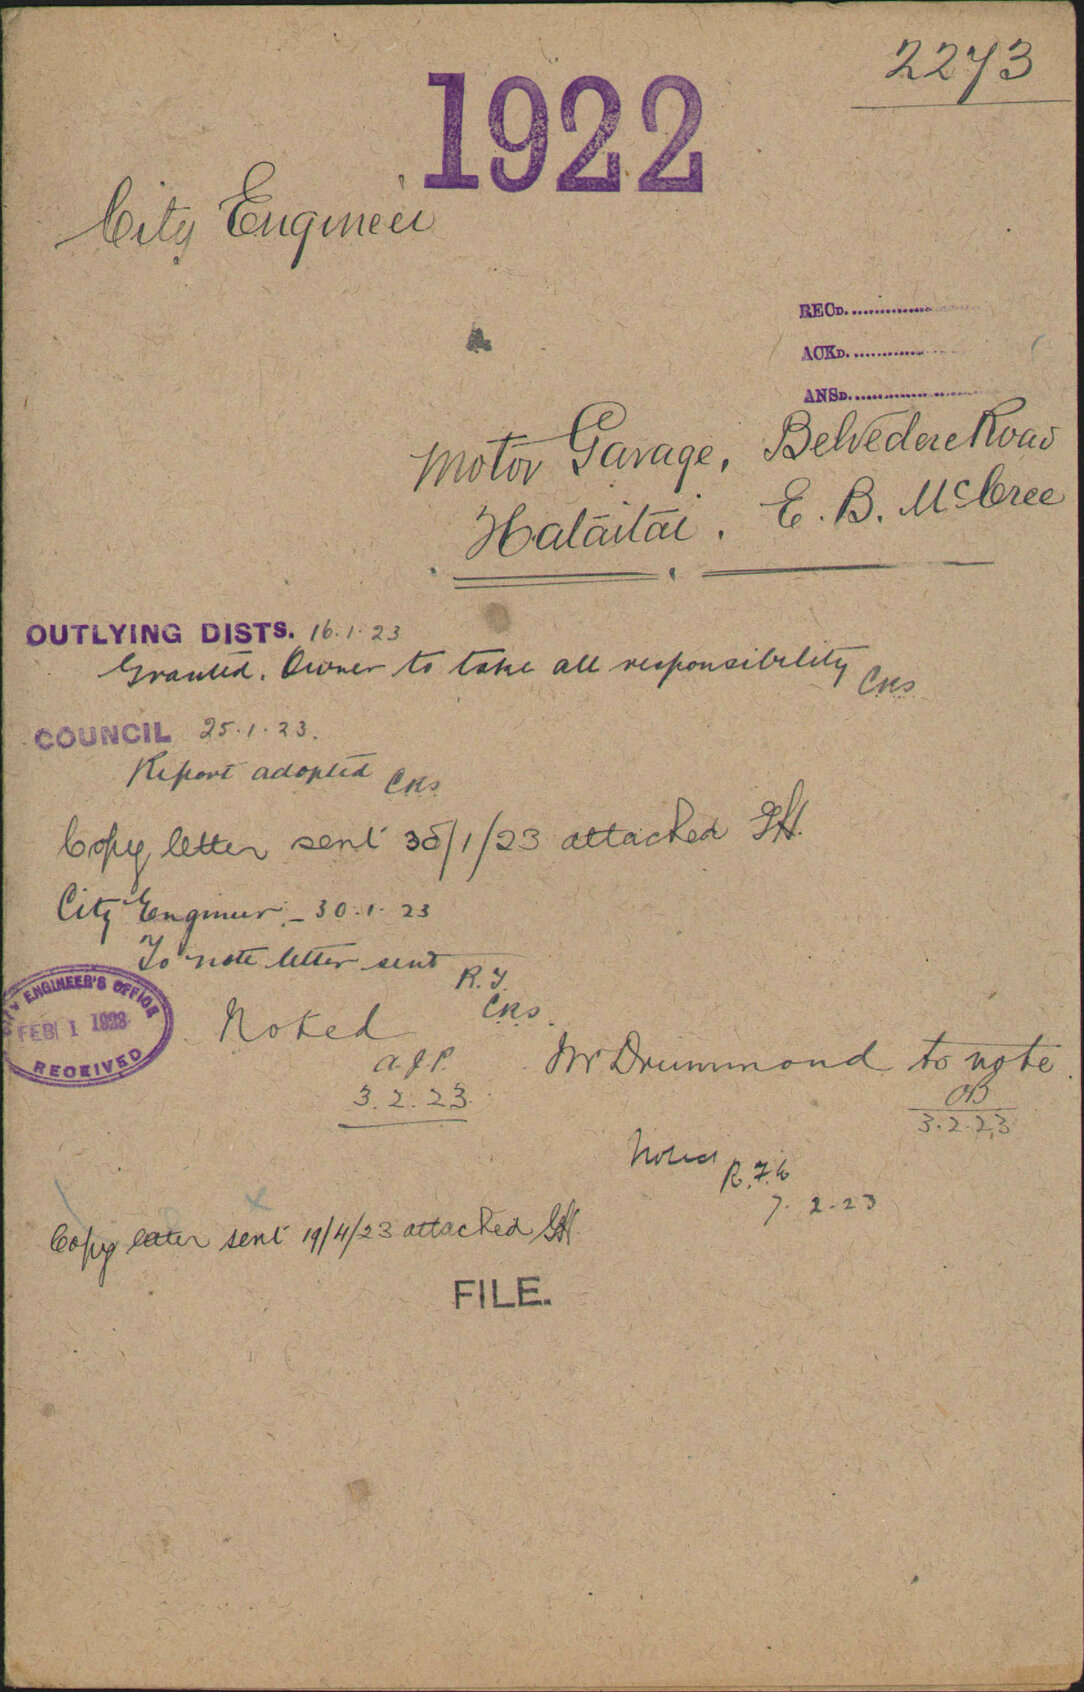 2273
1922
City Engineer
RECD.
ACKD.
ANSD.
Motor Garage, Belvedere Road
Hataitai. E. B. McCree
OUTLYING DISTS. 16.1.23
Granted. Owner to take all responsibility
COUNCIL 25.1.23.
Report adopted
Copy letter sent 30/1/23 attached
City Engineer – 30.1.23
To note letter sent
R.T.
CITY ENGINEER'S OFFICE
FEB 1 1923
RECEIVED
Noted
A.J.P.
3.2.23
Mr Drummond to note
3.2.23
Noted
7.2.23
Copy letter sent 19/4/23 attached
FILE.